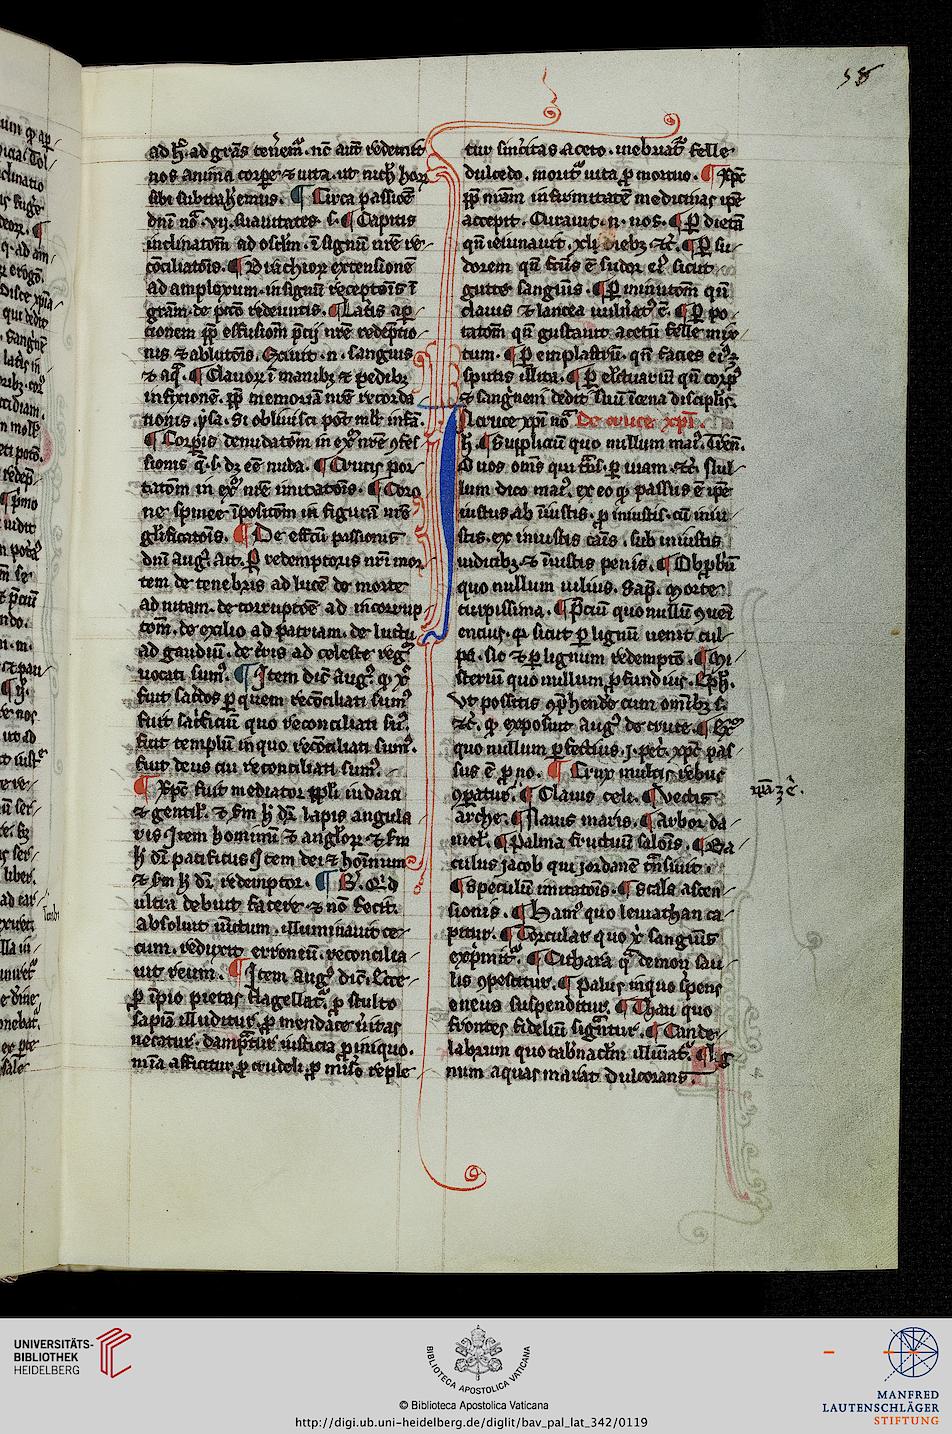 58
ad h. ad gr̄as tenem̄. nō aut̄ redemit
nos anima corpe ⁊ uita. ut nich̄ hor̄
sibi subtrahemus. ¶ Circa passionē
dn̄i nō .vij. suauitates .s. ¶ Capitis
inclinatōm ad osclm̄. ī signū nr̄e re
cōciliatōis. ¶ Brachiorȝ extensionē
ad amplexum. in signū receptōis ī
gr̄am. de pctō redeuntis. ¶ Lat̄is ap
tionem ꝓp̄ effusiōm p̄cij nr̄e redēptio
nis ⁊ ablutōis. Exiuit .n. sanguis
⁊ aq̄. ¶ Clauorȝ ī manibȝ ⁊ pedibȝ
infixionē. ꝓp̄ memoriā nr̄e recorda
tionis. ysa. Si obliuisci pōt mlr̄ infā.
¶ Corp̄is denudatōm in ex̄ nr̄e ꝯfes
sionis q̄ .s. dȝ ēē nuda. ¶ Crucis por
tatōm in ex̄ nr̄e imitatōis. ¶ Coro
ne spinee īpositōm in figurā nr̄e
glīficatōis. ¶ De effcū passionis
dn̄i augꝰ. ait. ꝑ redemptoris nr̄i mor
tem de tenebris ad lucē de morte
ad uitam. de corruptōe ad incorrup
tōm. de exilio ad patriam. de luctu
ad gaudiū. de t̄ris ad celeste regꝰ
uocati sumꝰ. ¶ Item dic̄ augꝰ. qꝫ xꝰ
fuit sac̄dos ꝑ quem recōciliati sumꝰ
fuit sac̄ficiū quo reconciliati sūꝰ.
fuit templū in quo recōciliati sumꝰ.
fuit deus cui reconciliati sumꝰ.
¶ Xp̄c fuit mediator ppl̄i iudaici
⁊ gentil̄. ⁊ sm̄ h̄ dr̄ lapis angula
ris Item hominū ⁊ angl̄oꝝ ⁊ sm̄
h̄ dr̄ pacificus Item dei ⁊ hoīnum
⁊ sm̄ h̄ dr̄ redemptor. ¶ B. Q̄d
ultra debuit facere ⁊ nō fecit.
absoluit uītum. illuminauit ce
cum. reduxit erroneū. reconcilia
uit reum. ¶ Item augꝰ dic̄. Ecce
ꝓ īpio pietas flagellat̄. ꝓ stulto
sapīa illuditur ꝓ mendace ūitas
necatur. dampt̄ur iusticia ꝓ iniquo.
mīa afficitur ꝓ crudeli ꝓ misō reple
tur sinc̄itas aceto. inebriat̄ felle
dulcedo. mori᷑ uita ꝓ mortuo. ¶ Xp̄c
ꝓp̄ nr̄am infirmitatē medicinas ip̄e
accepit. Curauit .n. nos. ¶ ꝑ dietā
qn̄ ieiunauit .xl. diebȝ ⁊c̄. ¶ ꝑ su
dorem qn̄ fcūs ē sudor eiꝰ sicut
gutte sanguis. ¶ ꝑ minutōm qn̄
clauis ⁊ lancea uuln̄atꝰ ē. ¶ ꝑ po
tatōm qn̄ gustauit acetū felle mix
tum. ¶ ꝑ emplastrū. qn̄ facies eiꝰ
sputis illita. ¶ ꝑ elc̄tuariū qn̄ corpꝰ
⁊ sanguem dedit suū ī cena discipl̄is.
De cruce xpī.
h. ¶ Suppliciū quo nullum maiꝰ. Tren̄.
O uos om̄s qui tn̄s. ꝑ uiam. ⁊c̄. Nul
lum dico maiꝰ. ex eo qꝫ passus ē ip̄e
iustus. ab iniustis. ꝓ iniustis. cū iniu
stis. ex iniustis caīs. sub iniustis
iudicibȝ. ⁊ iniustis penis. ¶ Obꝓbriū
quo nullum uilius. Sap̄. Morte
turpissima. ¶ P̄ciū quo nullū ꝯueni
encius. qꝫ sicut ꝑ lignū uenit cul
pa. sic ⁊ ꝑ lignum redemptō. ¶ Mi
steriū quo nullum ꝓfundius. Eph̄.
Ut possitis ꝯp̄hendere cum omībȝ s.
⁊c̄. qꝫ exposuit augꝰ de cruce. ¶ Ex̄
quo nullum ꝑfectius. j. pet̄. xp̄c pas
sus ē ꝓ no. ¶ Crux multis rebus
ꝯparatur. ¶ Clauis celi. ¶ Vectis
arche. ¶ Nauis maris. ¶ Arbor da
niel̄. ¶ Palma fructuū salōis. ¶ Ba
culus jacob qui jordanē tn̄siuit.
¶ Speculū imitatōis. ¶ Scala ascen
sionis. ¶ Hamꝰ quo leuiathan ca
pitur. ¶ Torcular quo xꝰ sanguis
exp̄mit̄. ¶ Cithara q̄ demon sau
lis ꝯpescitur. ¶ Palus in quo spens
eneus suspenditur. ¶ Thau quo
frontes fidelium signātur. ¶ Cande
labrum quo tab̄nactm̄ illuīat̄. ¶ Lig
num aquas marat dulcorans.
UNIVERSITÄTS-
BIBLIOTHEK
HEIDELBERG
BIBLIOTECA APOSTOLICA VATICANA
© Biblioteca Apostolica Vaticana
http://digi.ub.uni-heidelberg.de/diglit/bav_pal_lat_342/0119
MANFRED
LAUTENSCHLÄGER
STIFTUNG